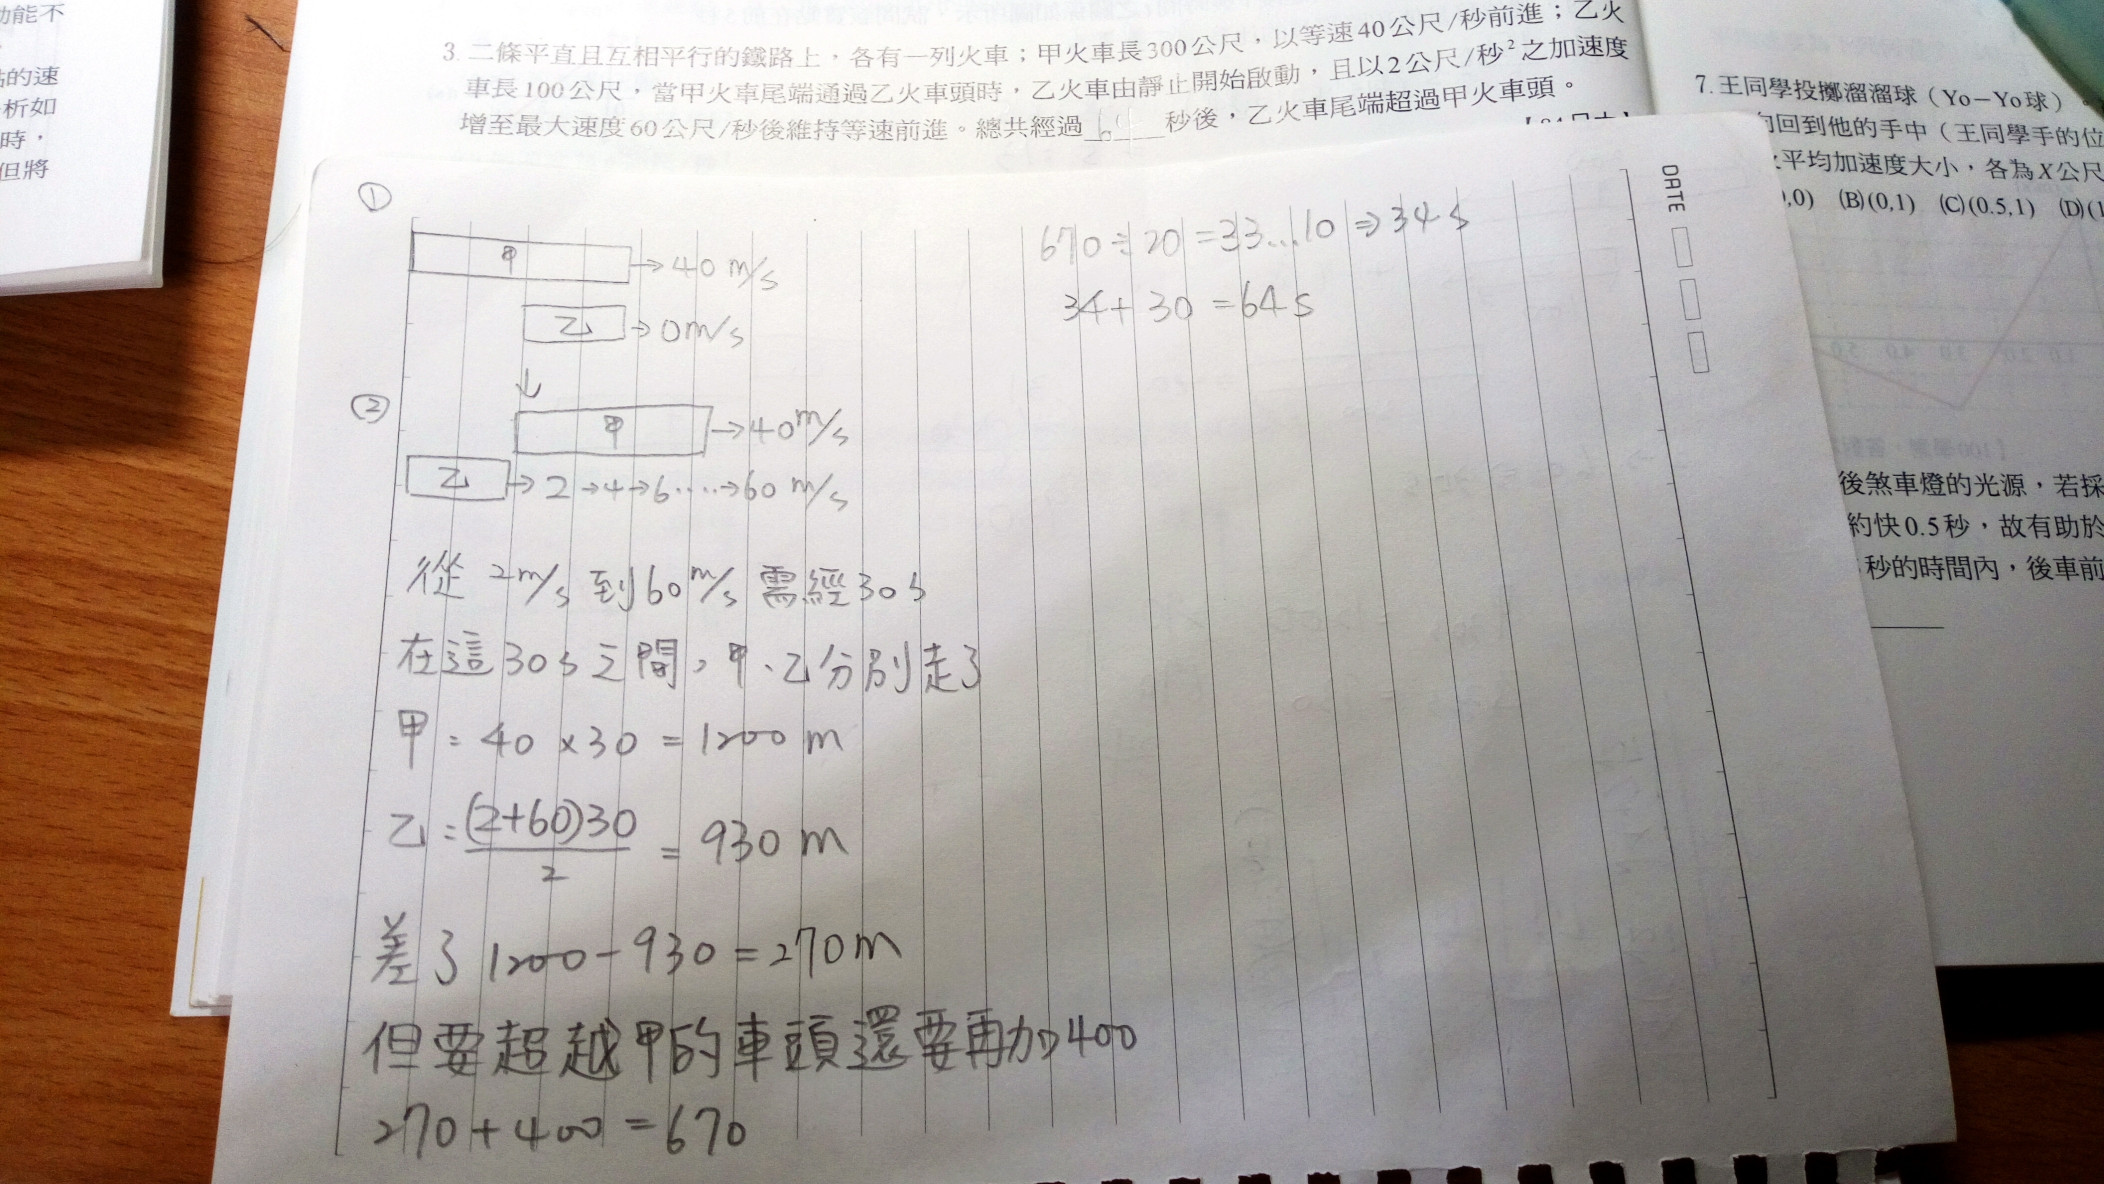 動能不
的速
析如
時，
但將
3. 二條平直且互相平行的鐵路上，各有一列火車；甲火車長300公尺，以等速40公尺/秒前進；乙火
車長100公尺，當甲火車尾端通過乙火車頭時，乙火車由靜止開始啟動，且以2公尺/秒²之加速度
增至最大速度60公尺/秒後維持等速前進。總共經過 秒後，乙火車尾端超過甲火車頭。
①
甲 →40 m/s
乙 →0m/s
↓
②
甲 →40m/s
乙 →2→4→6‧‧‧‧→60 m/s
從 2m/s 到60m/s 需經30s
在這30s之間，甲、乙分別走了
甲：40×30=1200m
乙：(2+60)30/2 = 930 m
差了1200-930=270m
但要超越甲的車頭還要再加400
270+400=670
670÷20=33...10⇒34s
34+30=64s
DATE
7. 王同學投擲溜溜球（Yo－Yo球）。
向回到他的手中（王同學手的位
平均加速度大小，各為X公尺
,0) (B)(0,1) (C)(0.5,1) (D)(1
後煞車燈的光源，若採
約快0.5秒，故有助於
秒的時間內，後車前